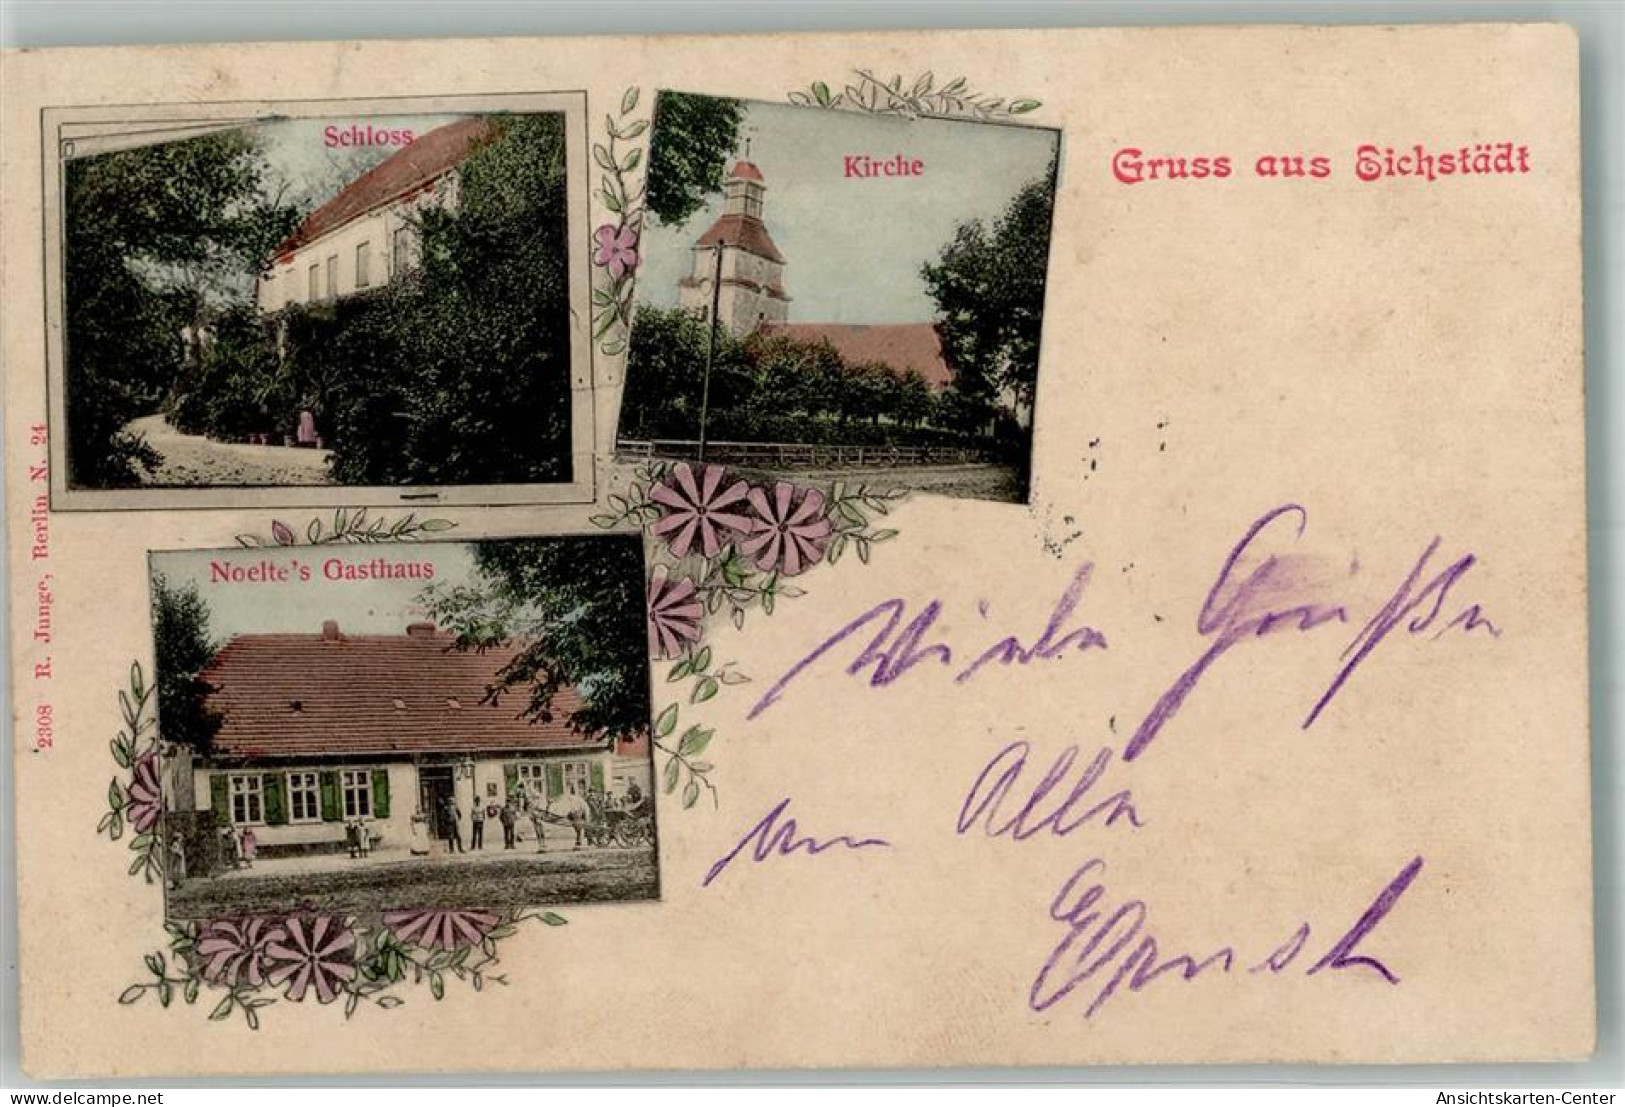 Schloss
Kirche
Gruss aus Eichstädt
Noelte's Gasthaus
2308 R. Junge, Berlin N. 24
Viele Grüße
an Alle
Ernst
delcampe.net
Ansichtskarten-Center